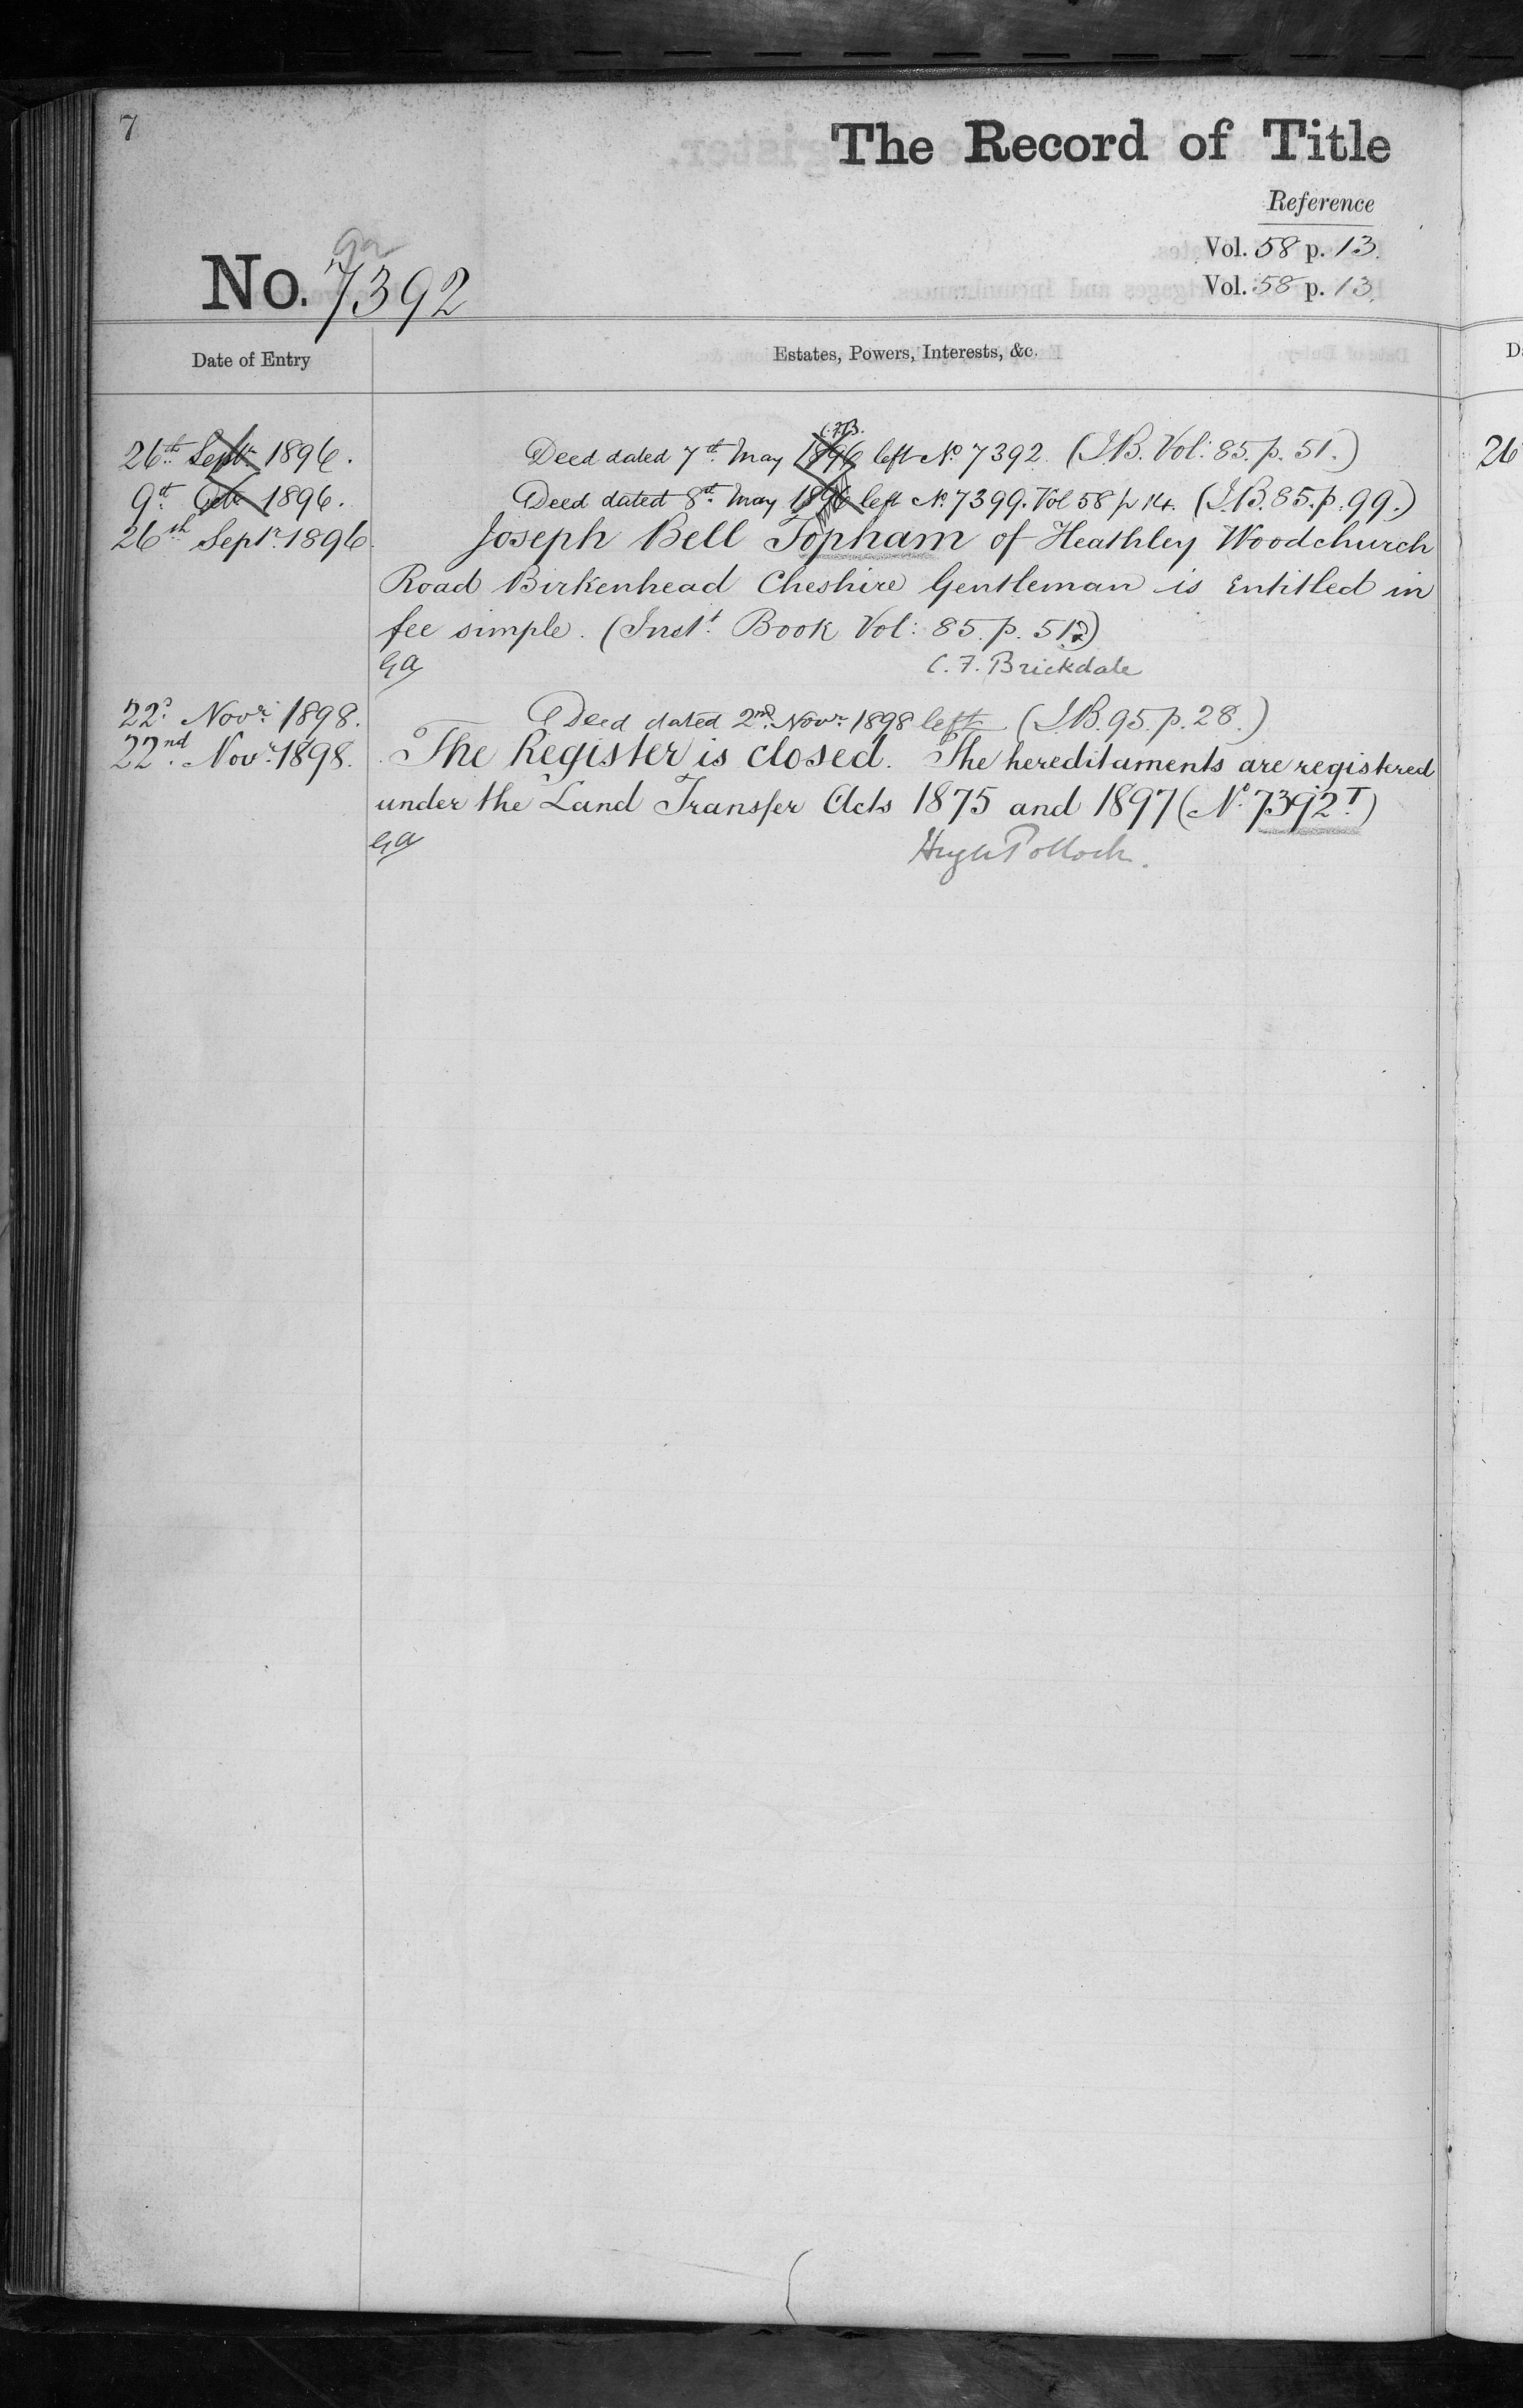 7
The Record of Title
Reference
Vol. 58 p. 13.
Vol. 58 p. 13.
No. 7392
Date of Entry
Estates, Powers, Interests, &c.
26th Septr. 1896. Deed dated 7th May 1896 left No. 7392 (I.B. Vol: 85. p. 51.)
C.F.B.
9th Octr 1896. Deed dated 8th May 1896 left No. 7399. Vol 58 p 14. (I.B. 85. p. 99.)
26th Septr. 1896. Joseph Bell Topham of Heathley Woodchurch
Road Birkenhead Cheshire Gentleman is Entitled in
fee simple. (Instt. Book Vol: 85. p. 51)
GA C. F. Brickdale
22d Novr. 1898. Deed dated 2nd. Novr. 1898 left (I.B. 95. p. 28.)
22nd. Novr. 1898. The Register is closed. The hereditaments are registered
under the Land Transfer Acts 1875 and 1897 (No. 7392T.)
GA Hugh Pollock.
D
26